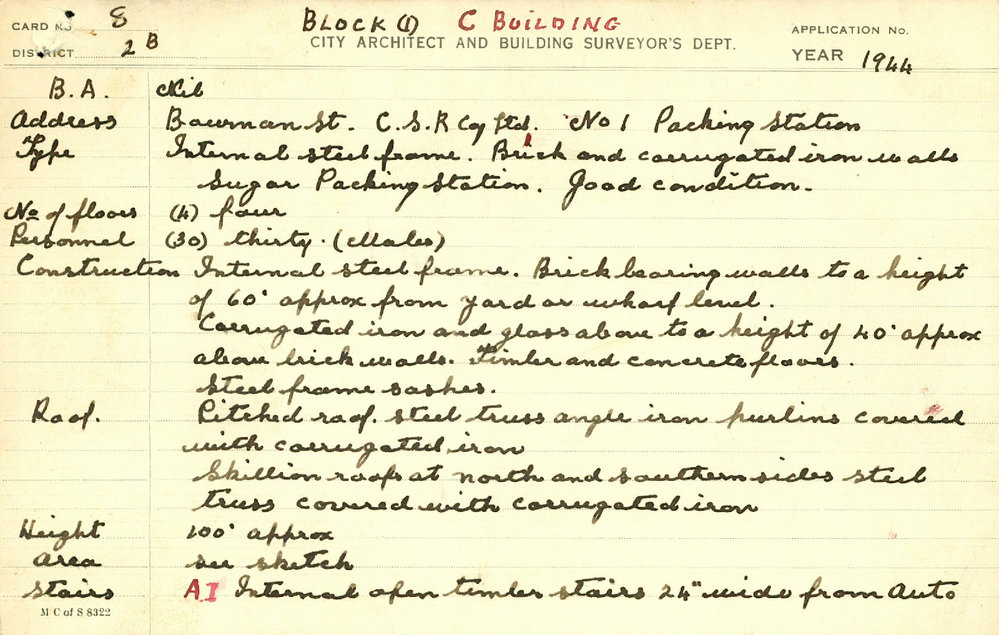 CARD No 8 BLOCK (1) C BUILDING APPLICATION No.
DISTRICT 2 B CITY ARCHITECT AND BUILDING SURVEYOR'S DEPT. YEAR 1944
B.A. Nil
Address Bowman St. C.S.R Coy Ltd. No 1 Packing Station
Type Internal steel frame. Brick and corrugated iron walls
Sugar Packing Station. Good condition.
No of floors (4) four
Personnel (30) thirty. (Males)
Construction Internal steel frame. Brick bearing walls to a height
of 60' approx from yard or wharf level.
Corrugated iron and glass above to a height of 40' approx
above brick walls. Timber and concrete floors.
Steel frame sashes.
Roof. Pitched roof. steel truss angle iron purlins covered
with corrugated iron
Skillion roofs at north and southern sides steel
truss covered with corrugated iron
Height 100' approx
Area see sketch
Stairs A I Internal open timber stairs 24" wide from Auto
M C of S 8322